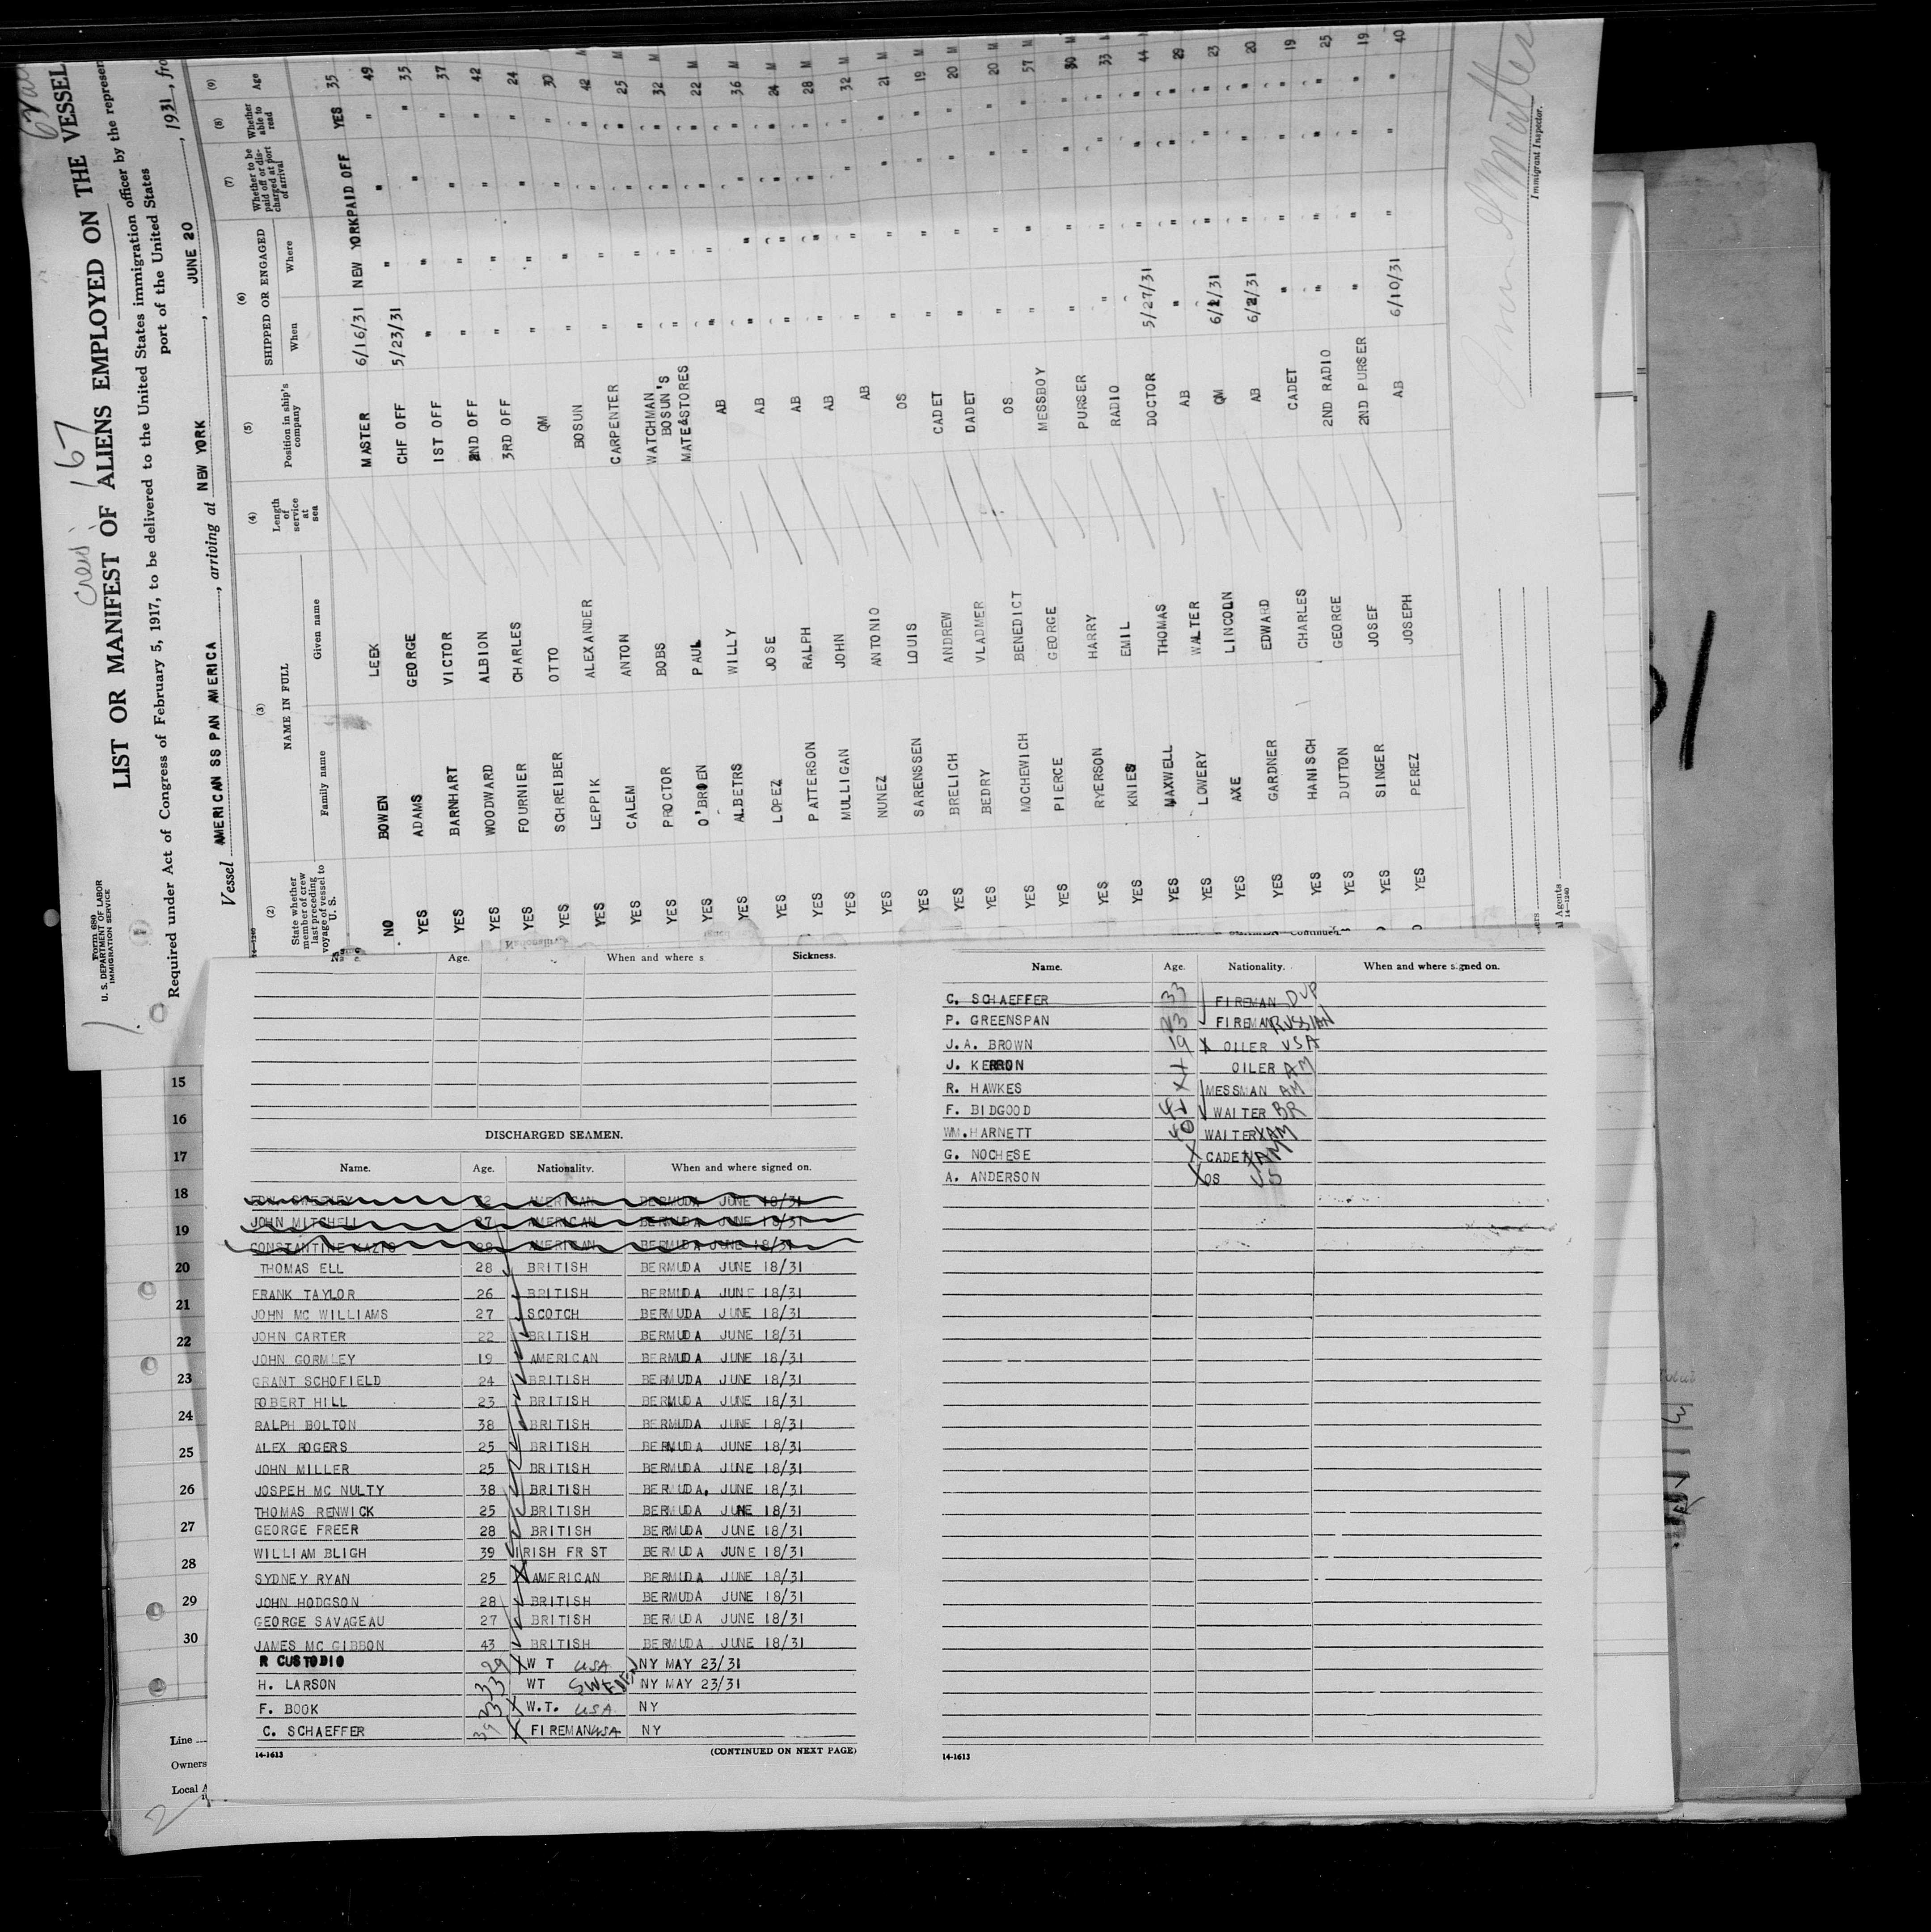 Form 680
U. S. DEPARTMENT OF LABOR
IMMIGRATION SERVICE
Crew 167
LIST OR MANIFEST OF ALIENS EMPLOYED ON THE VESSEL
Required under Act of Congress of February 5, 1917, to be delivered to the United States immigration officer by the represen
port of the United States
Vessel AMERICAN SS PAN AMERICA, arriving at NEW YORK, JUNE 20, 1931, fro
(2) (3) (4) (5) (6) (7) (8) (9)
State whether member of crew last preceding voyage of vessel to U. S. NAME IN FULL Family name Given name Length of service at sea Position in ship's company SHIPPED OR ENGAGED When Where Whether to be paid off or discharged at port of arrival Whether able to read Age
NO BOWEN LEEK MASTER 6/16/31 NEW YORK PAID OFF YES 35
YES ADAMS GEORGE CHF OFF 5/23/31 " " " 49
YES BARNHART VICTOR 1ST OFF " " " " 35
YES WOODWARD ALBION 2ND OFF " " " " 37
YES FOURNIER CHARLES 3RD OFF " " " " 42
YES SCHREIBER OTTO QM " " " " 24
YES LEPPIK ALEXANDER BOSUN " " " " 30
YES CALEM ANTON CARPENTER " " " " 42 M
YES PROCTOR BOBS WATCHMAN " " " " 25 M
YES O'BRIEN PAUL BOSUN'S MATE&STORES " " " " 32 M
YES ALBETRS WILLY AB " " " " 22 M
YES LOPEZ JOSE AB " " " " 36 M
YES PATTERSON RALPH AB " " " " 24 M
YES MULLIGAN JOHN AB " " " " 28 M
YES NUNEZ ANTONIO AB " " " " 32 M
YES SARENSSEN LOUIS OS " " " " 21 M
YES BRELICH ANDREW CADET " " " " 19 M
YES BEDRY VLADMER CADET " " " " 20 M
YES MOCHEWICH BENEDICT OS " " " " 20 M
YES PIERCE GEORGE MESSBOY " " " " 57 M
YES RYERSON HARRY PURSER " " " " 30 M
YES KNIES EMIL RADIO " " " " 33
YES MAXWELL THOMAS DOCTOR 5/27/31 " " " 44
YES LOWERY WALTER AB " " " " 29
YES AXE LINCOLN QM 6/2/31 " " " 23
YES GARDNER EDWARD AB 6/2/31 " " " 20
YES HANISCH CHARLES CADET " " " " 19
YES DUTTON GEORGE 2ND RADIO " " " " 25
YES SINGER JOSEF 2ND PURSER " " " " 19
YES PEREZ JOSEPH AB 6/10/31 " " " 40
Immigrant Inspector.
l Agents
14-1240
15
16
17
18
19
20
21
22
23
24
25
26
27
28
29
30
Line
Owners
Local A
2
Age. When and where s Sickness.
DISCHARGED SEAMEN.
Name. Age. Nationality. When and where signed on.
JOHN MITCHELL 27 AMERICAN BERMUDA JUNE 18/31
CONSTANTINE AMERICAN BERMUDA JUNE 18/31
THOMAS ELL 28 BRITISH BERMUDA JUNE 18/31
FRANK TAYLOR 26 BRITISH BERMUDA JUNE 18/31
JOHN MC WILLIAMS 27 SCOTCH BERMUDA JUNE 18/31
JOHN CARTER 22 BRITISH BERMUDA JUNE 18/31
JOHN GORMLEY 19 AMERICAN BERMUDA JUNE 18/31
GRANT SCHOFIELD 24 BRITISH BERMUDA JUNE 18/31
ROBERT HILL 23 BRITISH BERMUDA JUNE 18/31
RALPH BOLTON 38 BRITISH BERMUDA JUNE 18/31
ALEX ROGERS 25 BRITISH BERMUDA JUNE 18/31
JOHN MILLER 25 BRITISH BERMUDA JUNE 18/31
JOSPEH MC NULTY 38 BRITISH BERMUDA, JUNE 18/31
THOMAS RENWICK 25 BRITISH BERMUDA JUNE 18/31
GEORGE FREER 28 BRITISH BERMUDA JUNE 18/31
WILLIAM BLIGH 39 IRISH FR ST BERMUDA JUNE 18/31
SYDNEY RYAN 25 X AMERICAN BERMUDA JUNE 18/31
JOHN HODGSON 28 BRITISH BERMUDA JUNE 18/31
GEORGE SAVAGEAU 27 BRITISH BERMUDA JUNE 18/31
JAMES MC GIBBON 43 BRITISH BERMUDA JUNE 18/31
R CUSTODIO 29 X W T USA NY MAY 23/31
H. LARSON 33 WT SWEDEN NY MAY 23/31
F. BOOK 23 X W.T. USA NY
C. SCHAEFFER 39 X FIREMAN USA NY
14-1613 (CONTINUED ON NEXT PAGE)
Continued.
Name. Age. Nationality. When and where signed on.
C. SCHAEFFER 33 FIREMAN DUP
P. GREENSPAN 23 FIREMAN RUSSIAN
J.A. BROWN 19 X OILER USA
J. KERRON X OILER AM
R. HAWKES X MESSMAN AM
F. BIDGOOD WAITER BR
WM.HARNETT 40 WAITER X AM
G. NOCHESE X CADET AM
A. ANDERSON X OS US
14-1613